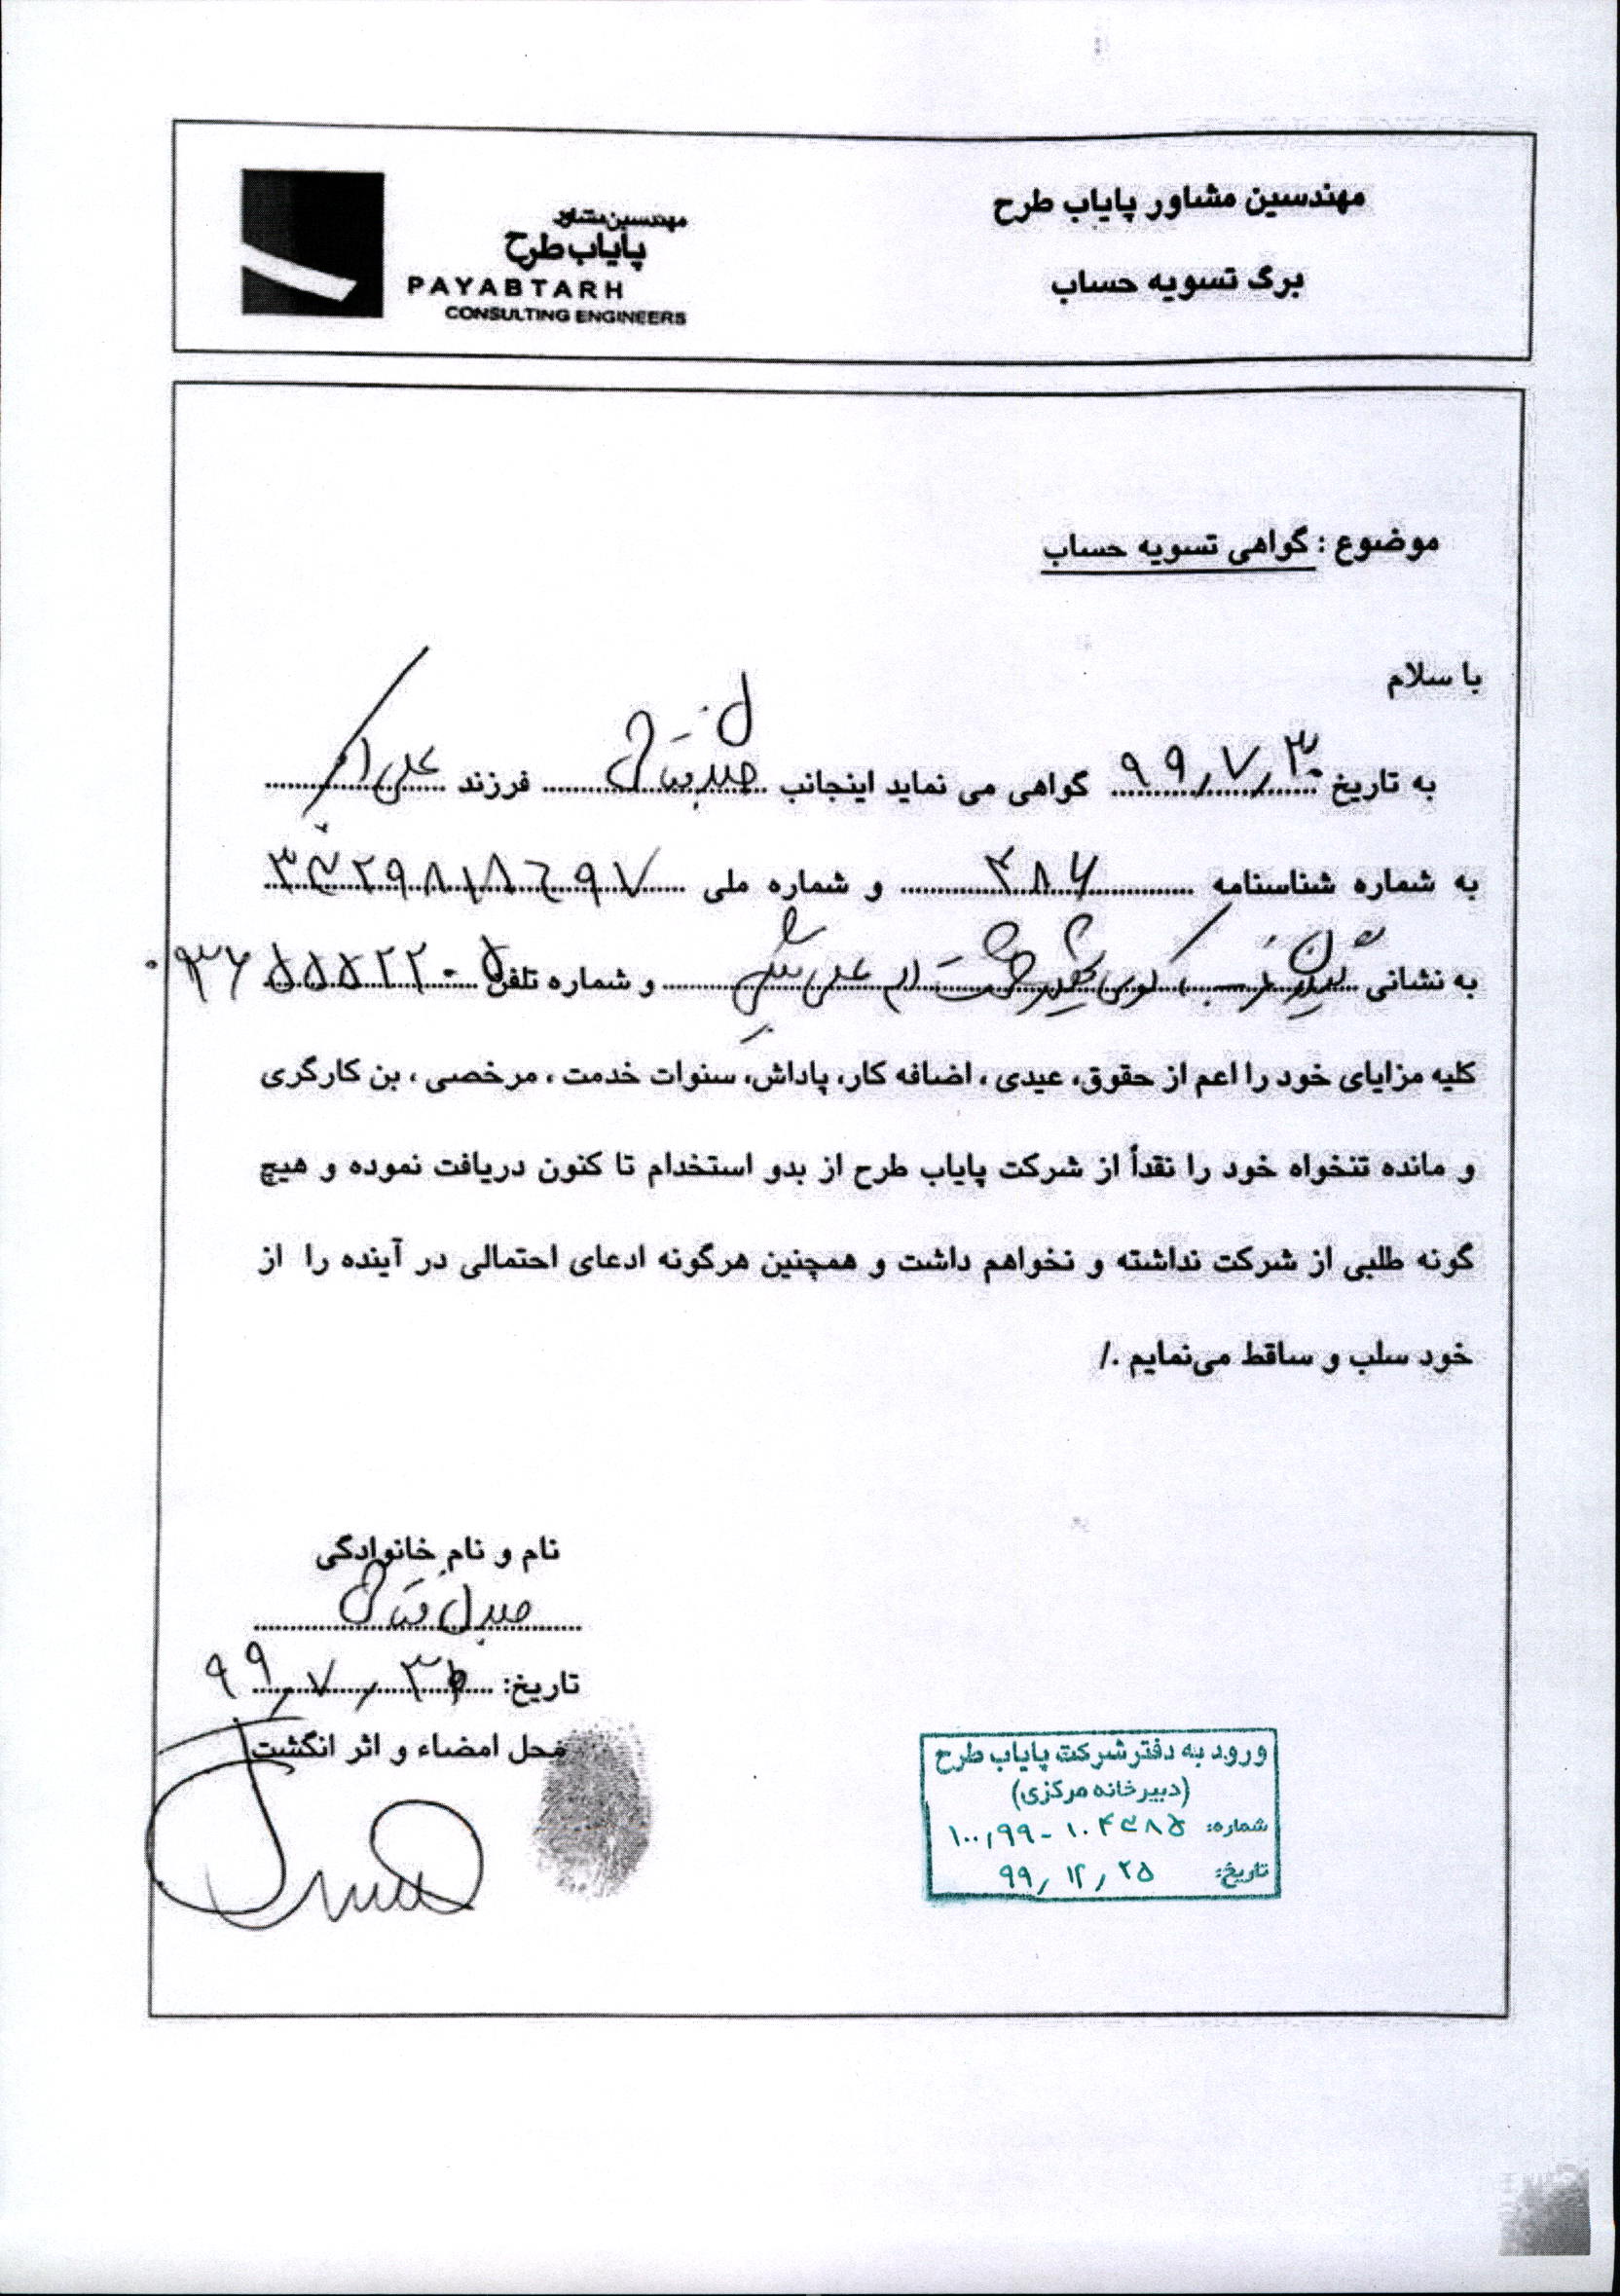 مهندسین مشاور پایاب طرح
برگ تسویه حساب
مهندسین مشاور
پایاب طرح
PAYABTARH
CONSULTING ENGINEERS
موضوع : گواهی تسویه حساب
با سلام
به تاریخ ۹۹,۷,۳۰ گواهی می نماید اینجانب فرزند علی اکبر
به شماره شناسنامه ۳۸۶ و شماره ملی
به نشانی و شماره تلفن
کلیه مزایای خود را اعم از حقوق، عیدی ، اضافه کار، پاداش، سنوات خدمت ، مرخصی ، بن کارگری
و مانده تنخواه خود را نقداً از شرکت پایاب طرح از بدو استخدام تا کنون دریافت نموده و هیچ
گونه طلبی از شرکت نداشته و نخواهم داشت و همچنین هرگونه ادعای احتمالی در آینده را از
خود سلب و ساقط می‌نمایم ./
نام و نام خانوادگی
تاریخ: ۹۹,۷,۳۰
محل امضاء و اثر انگشت
ورود به دفتر شرکت پایاب طرح
(دبیرخانه مرکزی)
شماره: ۱۰۰,۹۹-۱۰۴۳۸۵
تاریخ: ۹۹,۱۲,۲۵